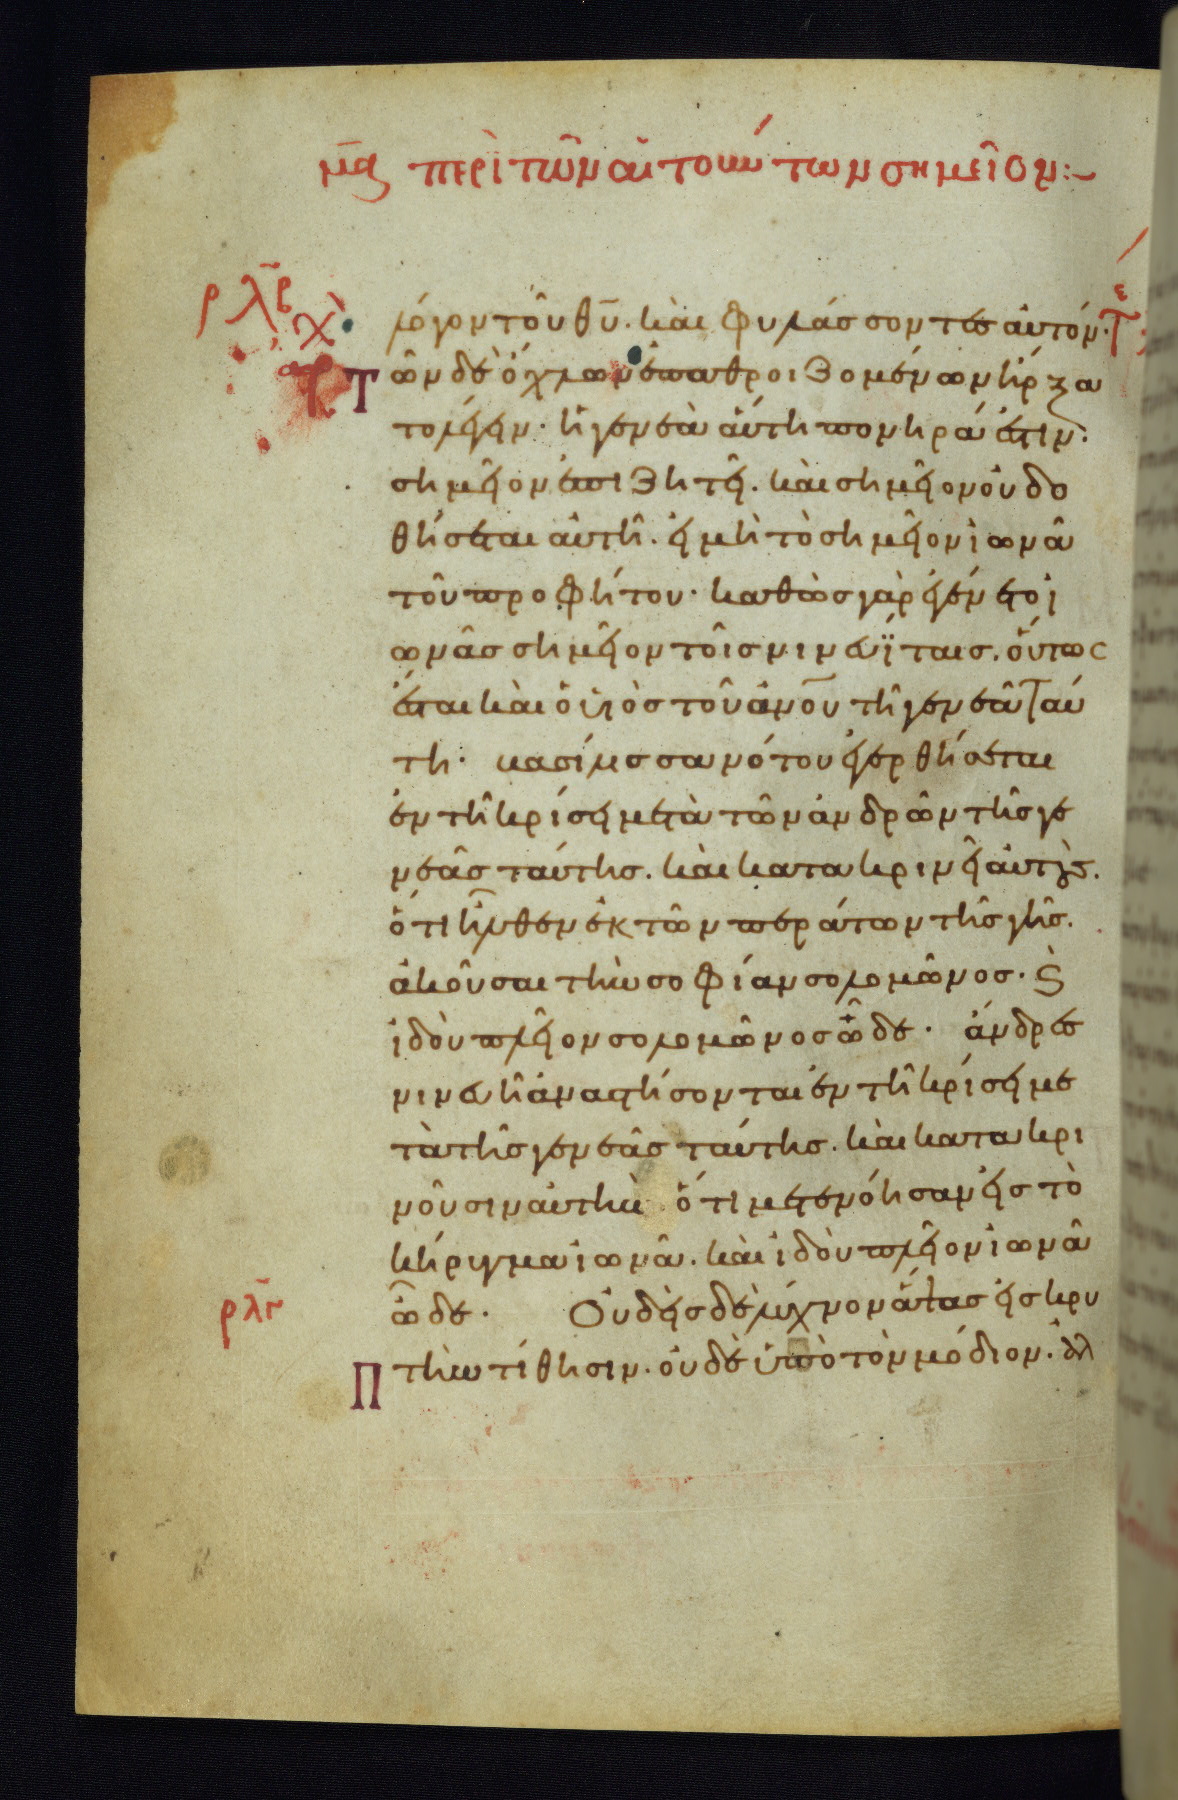 μα περὶ τῶν αἰτούντων σημεῖον:~
ρλβ
λόγον τοῦ θυ. καὶ φυλάσσοντες αὐτόν.
Τῶν δὲ ὄχλων ἐπαθροιζομένων ἤρξα
το λέγειν. ἡ γενεὰ αὕτη πονηρά ἐστιν.
σημεῖον ἐπιζητεῖ. καὶ σημεῖον οὐ δο
θήσεται αὐτῆ. εἰ μὴ τὸ σημεῖον ἰωνᾶ
τοῦ προφήτου. καθὼς γὰρ ἐγένετο ἰ
ωνᾶς σημεῖον τοῖς νινευΐταις. οὕτως
ἔσται καὶ ὁ υἱὸς τοῦ ἀνου τῆ γενεᾶ ταύ
τη. βασίλισσα νότου ἐγερθήσεται
ἐν τῆ κρίσει μετὰ τῶν ἀνδρῶν τῆς γε
νεᾶς ταύτης. καὶ κατακρινεῖ αὐτούς.
ὅτι ἦλθεν ἐκ τῶν περάτων τῆς γῆς.
ἀκοῦσαι τὴν σοφίαν σολομῶνος. ϗ
ἰδοὺ πλεῖον σολομῶνος ὧδε. ἄνδρες
νινευῆ ἀναστήσονται ἐν τῆ κρίσει με
τὰ τῆς γενεᾶς ταύτης. καὶ κατακρι
νοῦσιν αὐτὴν ὅτι μετενόησαν εἰς τὸ
κήρυγμα ἰωνᾶ. καὶ ἰδοὺ πλεῖον ἰωνᾶ
ρλγ
ὧδε. Οὐδεὶς δὲ λύχνον ἅψας εἰς κρυ
Πτὴν τίθησιν. οὐδὲ ὑπὸ τὸν μόδιον. ἀλ